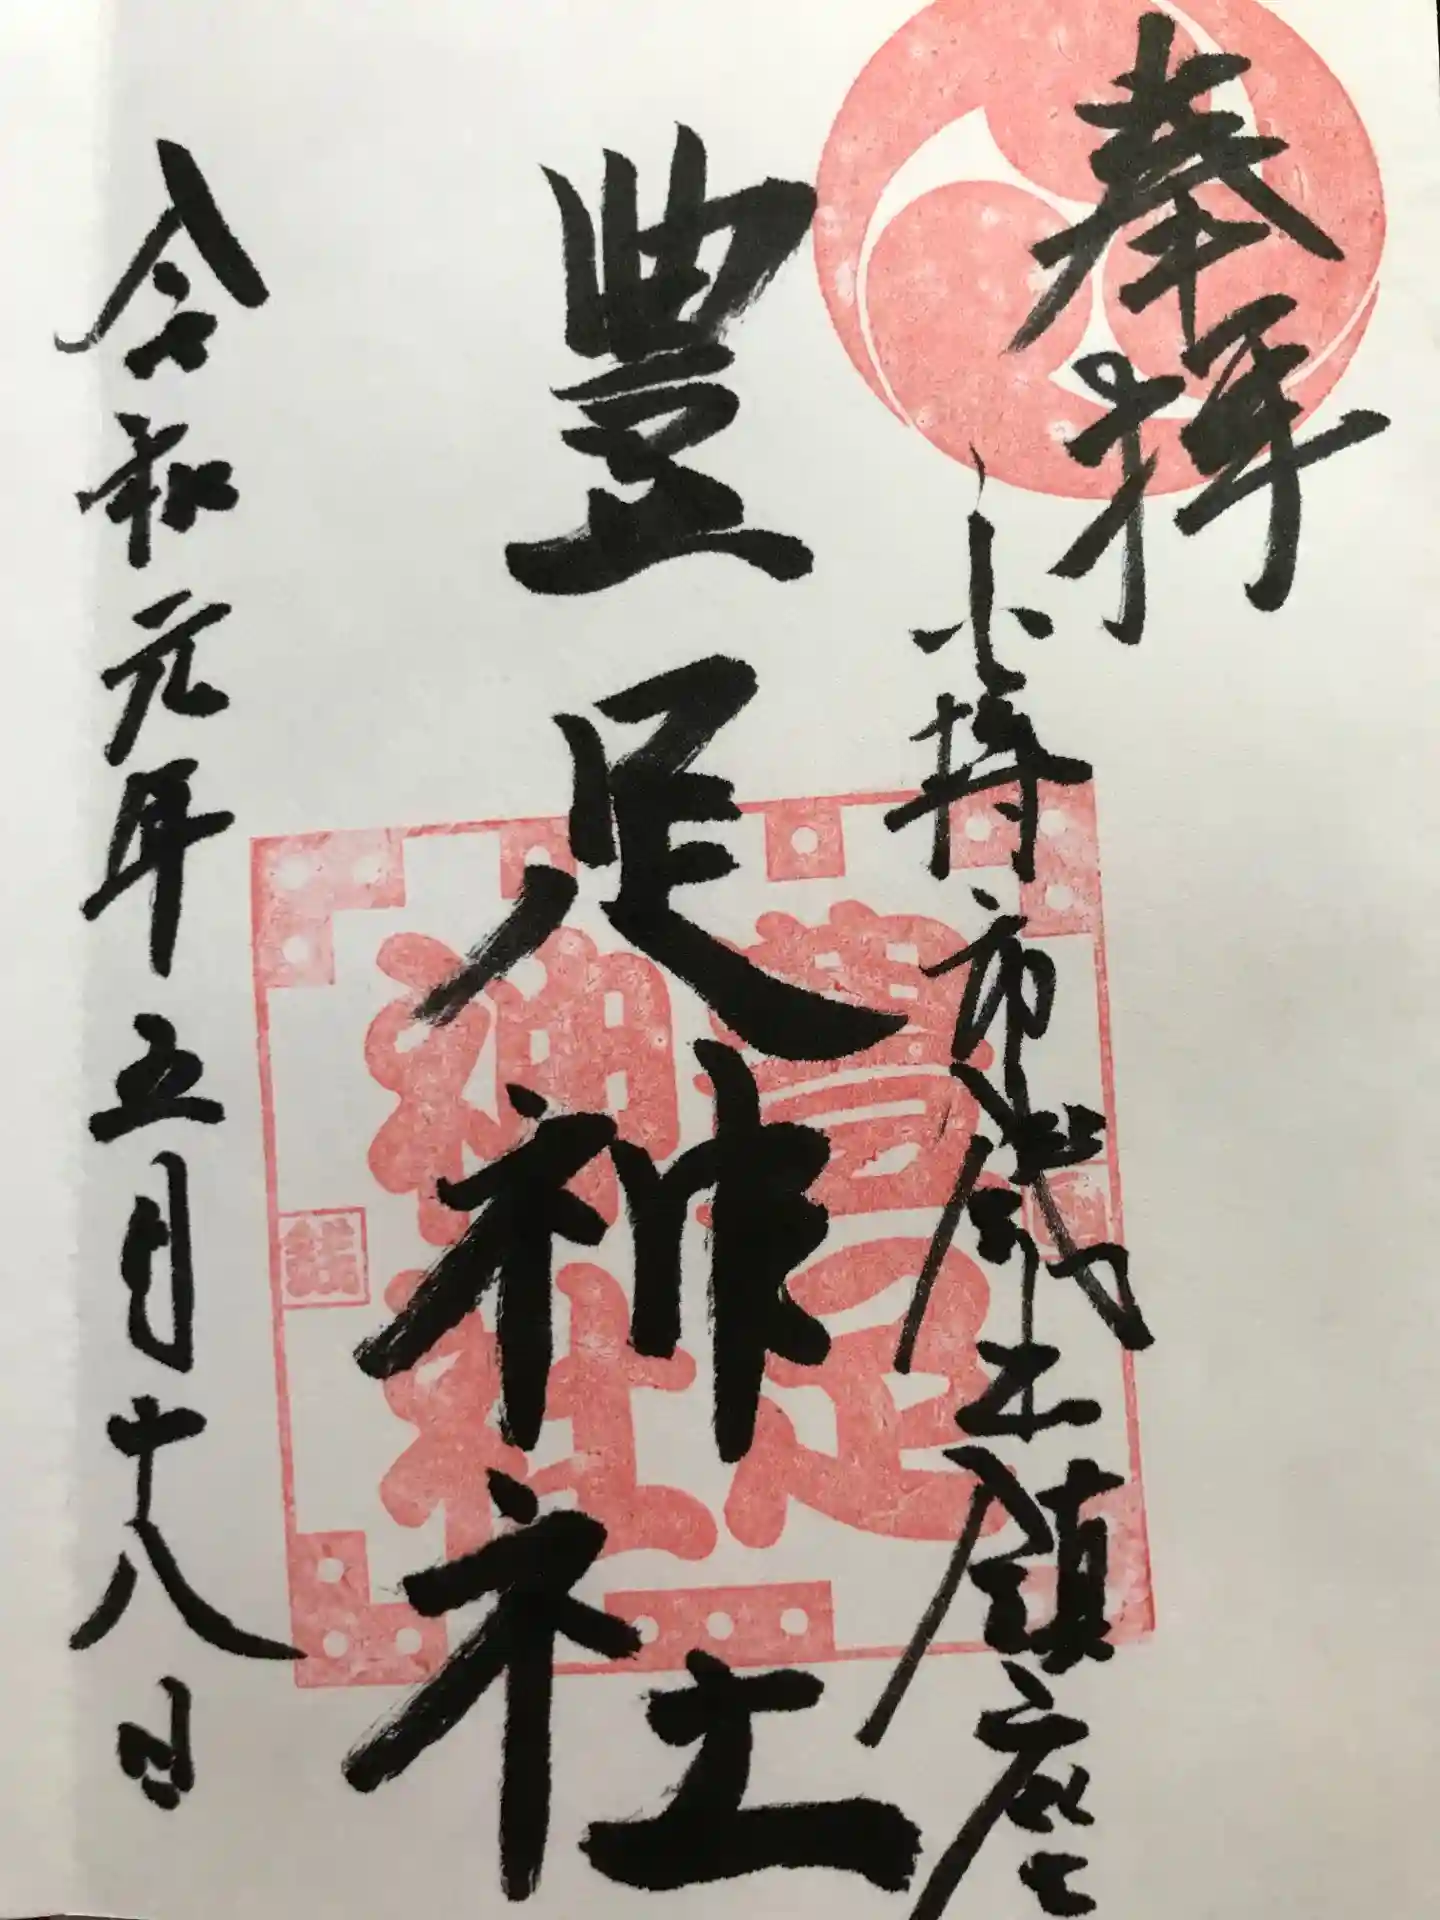 奉拝
小樽市銭函鎮座
豊足神社
豊足神社
令和元年五月十八日